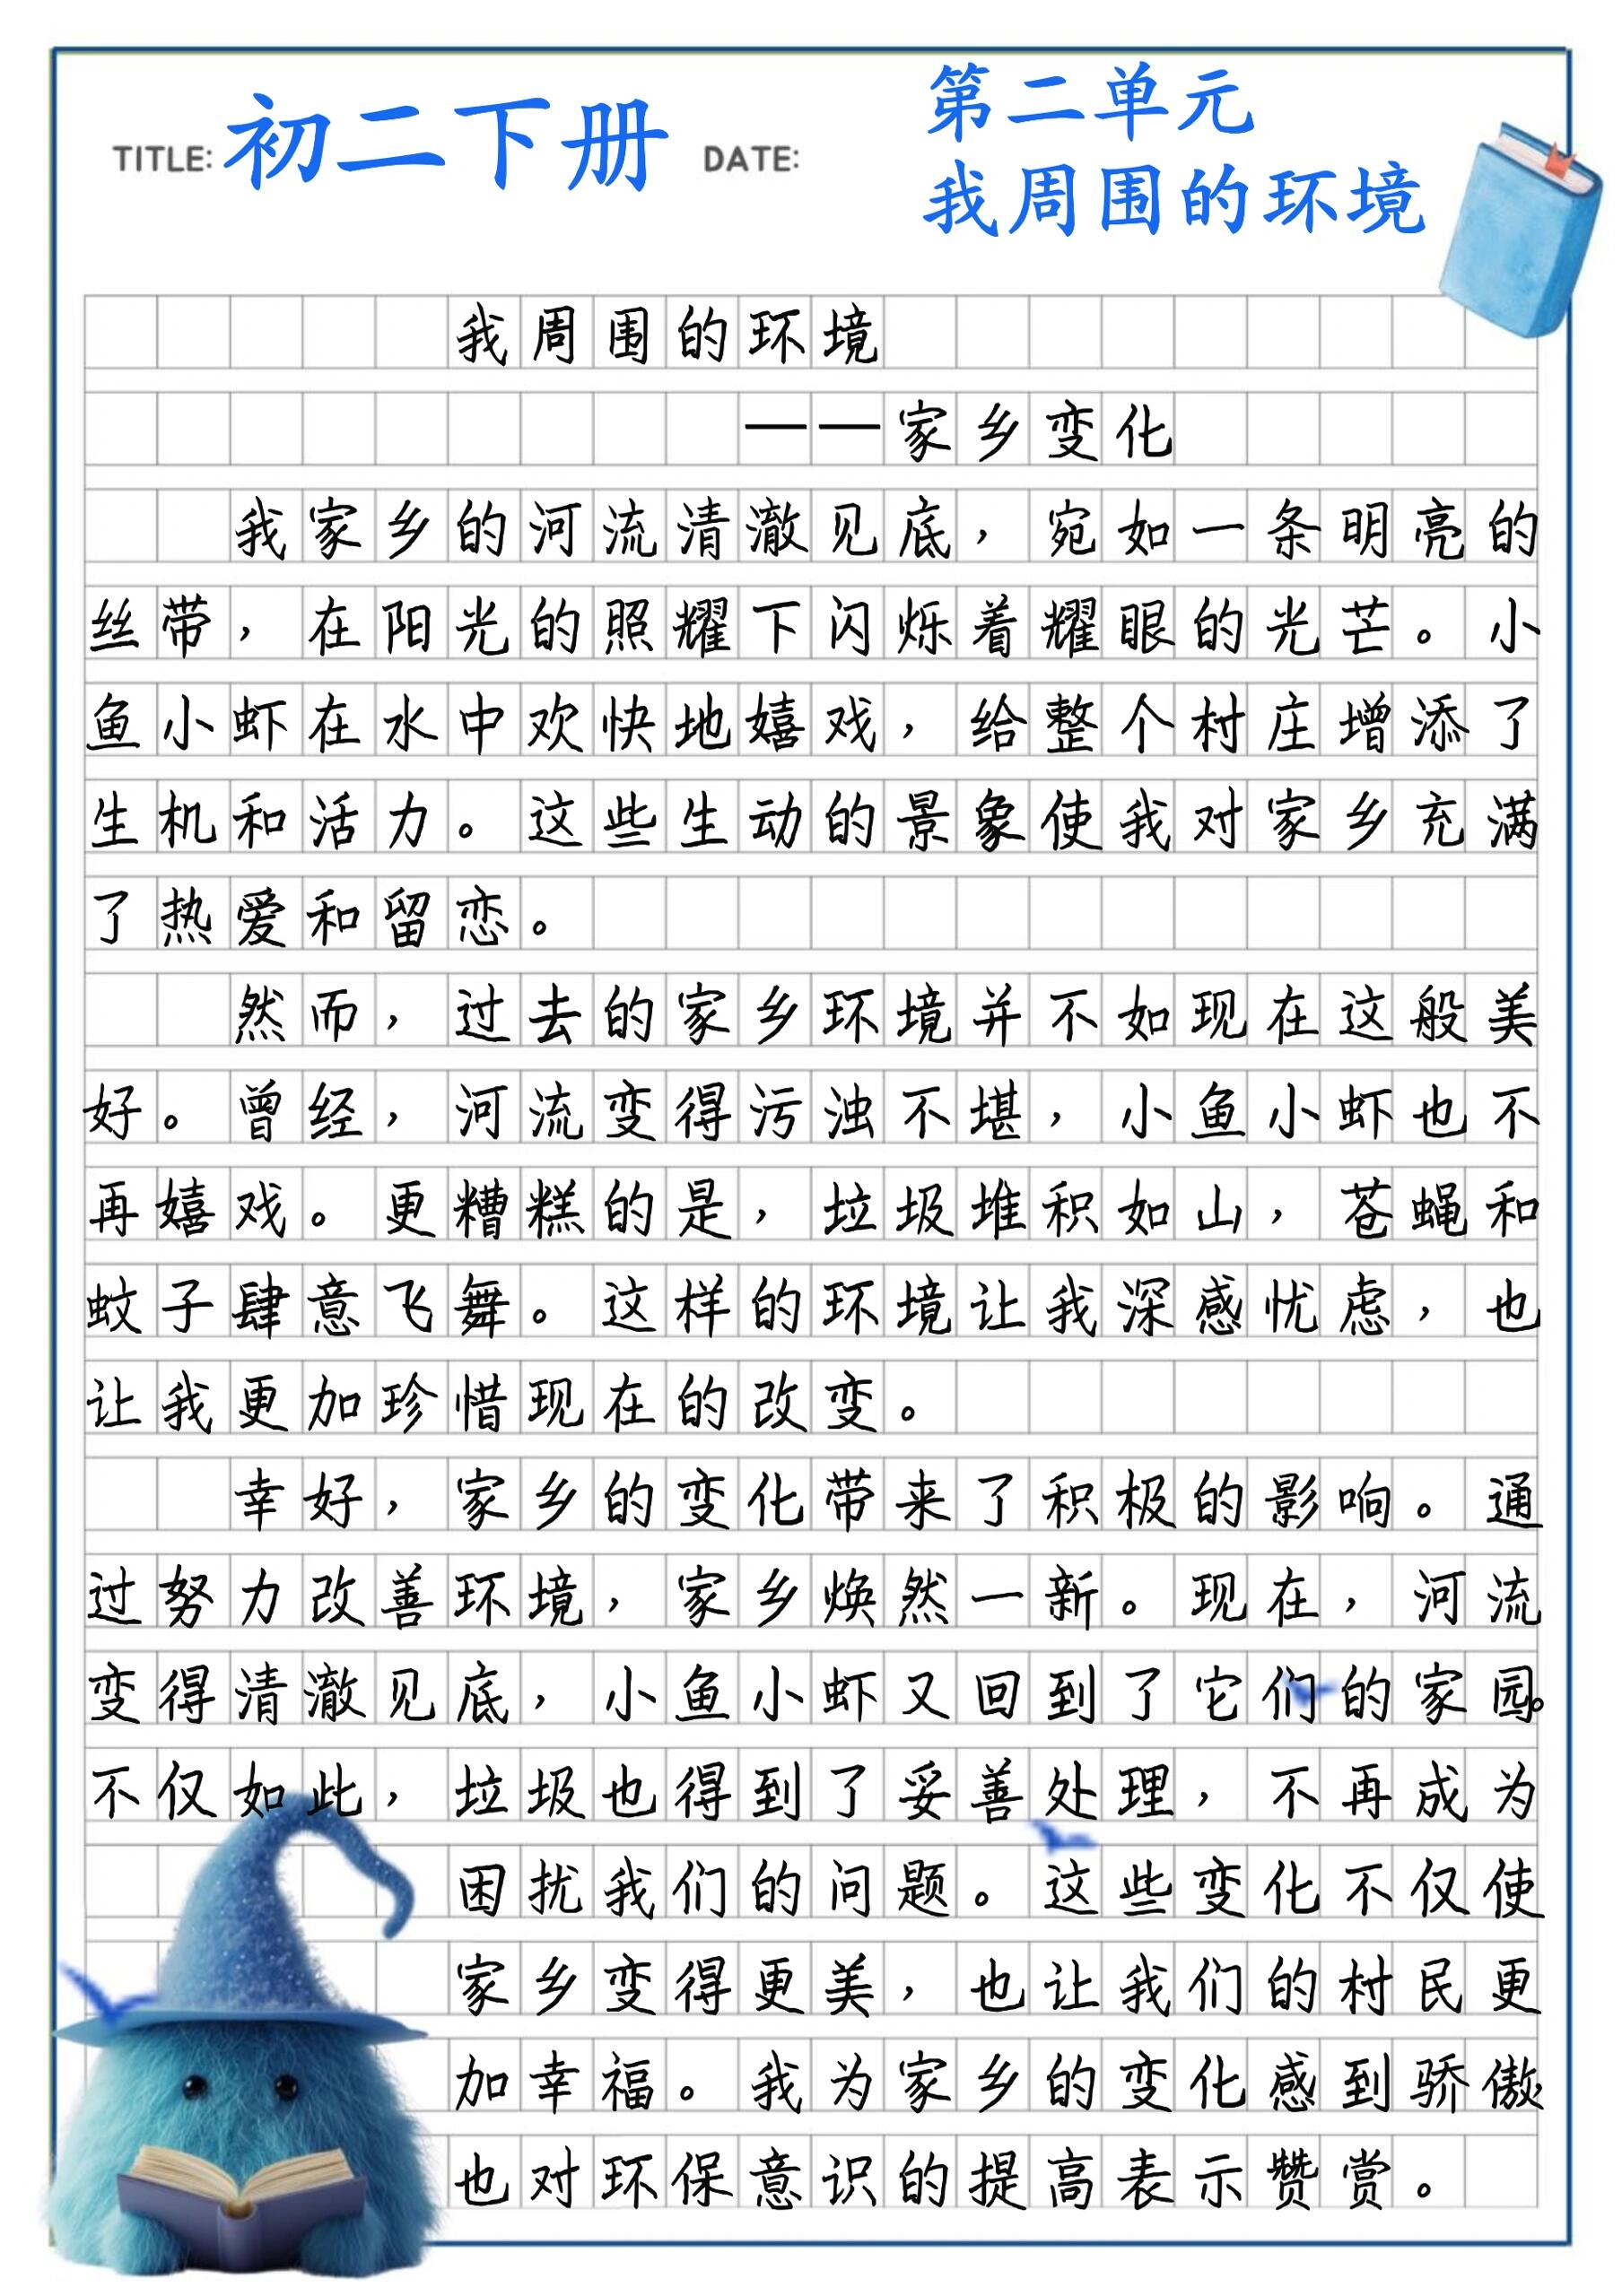 TITLE: 初二下册 DATE: 第二单元
我周围的环境
我周围的环境
——家乡变化
我家乡的河流清澈见底，宛如一条明亮的
丝带，在阳光的照耀下闪烁着耀眼的光芒。小
鱼小虾在水中欢快地嬉戏，给整个村庄增添了
生机和活力。这些生动的景象使我对家乡充满
了热爱和留恋。
然而，过去的家乡环境并不如现在这般美
好。曾经，河流变得污浊不堪，小鱼小虾也不
再嬉戏。更糟糕的是，垃圾堆积如山，苍蝇和
蚊子肆意飞舞。这样的环境让我深感忧虑，也
让我更加珍惜现在的改变。
幸好，家乡的变化带来了积极的影响。通
过努力改善环境，家乡焕然一新。现在，河流
变得清澈见底，小鱼小虾又回到了它们的家园。
不仅如此，垃圾也得到了妥善处理，不再成为
困扰我们的问题。这些变化不仅使
家乡变得更美，也让我们的村民更
加幸福。我为家乡的变化感到骄傲
也对环保意识的提高表示赞赏。